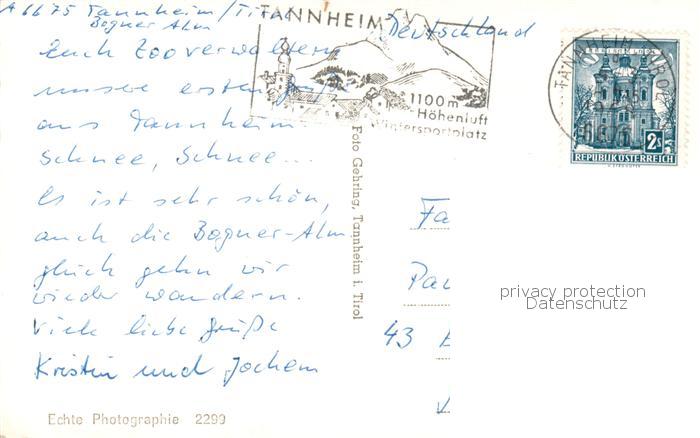 A 6675 Tannheim/Tirol
Bogner Alm
Deutschland
TANNHEIM
1100m
Höhenluft
Wintersportplatz
REPUBLIK ÖSTERREICH
2s
Euch Zooverwaltern
unsere ersten Grüße
aus Tannheim.
Schnee, Schnee...
Es ist sehr schön,
auch die Bogner-Alm
gleich gehn wir
wieder wandern.
Viele liebe Grüße
Kristin und Jochem
Foto Gehring, Tannheim i. Tirol
Fa
43
privacy protection
Datenschutz
Echte Photographie 2299